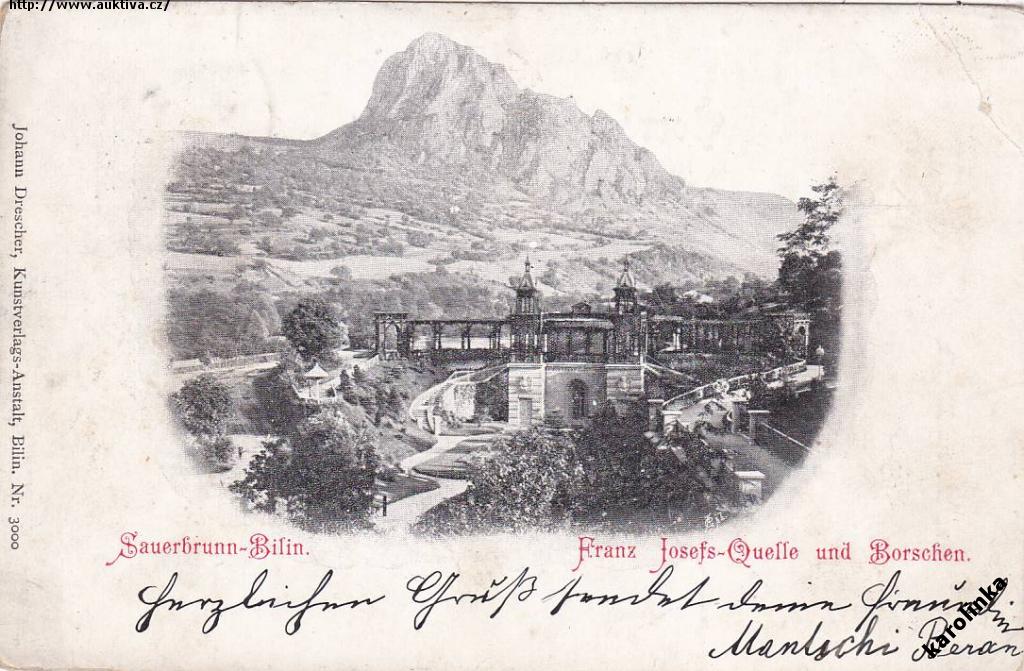 http://www.auktiva.cz/
Johann Drescher, Kunstverlags-Anstalt, Bilin. Nr. 3000
Sauerbrunn-Bilin.
Franz Josefs-Quelle und Borschen.
Herzlichen Gruß sendet deine Freundin
Mantschi Beran
karolinka